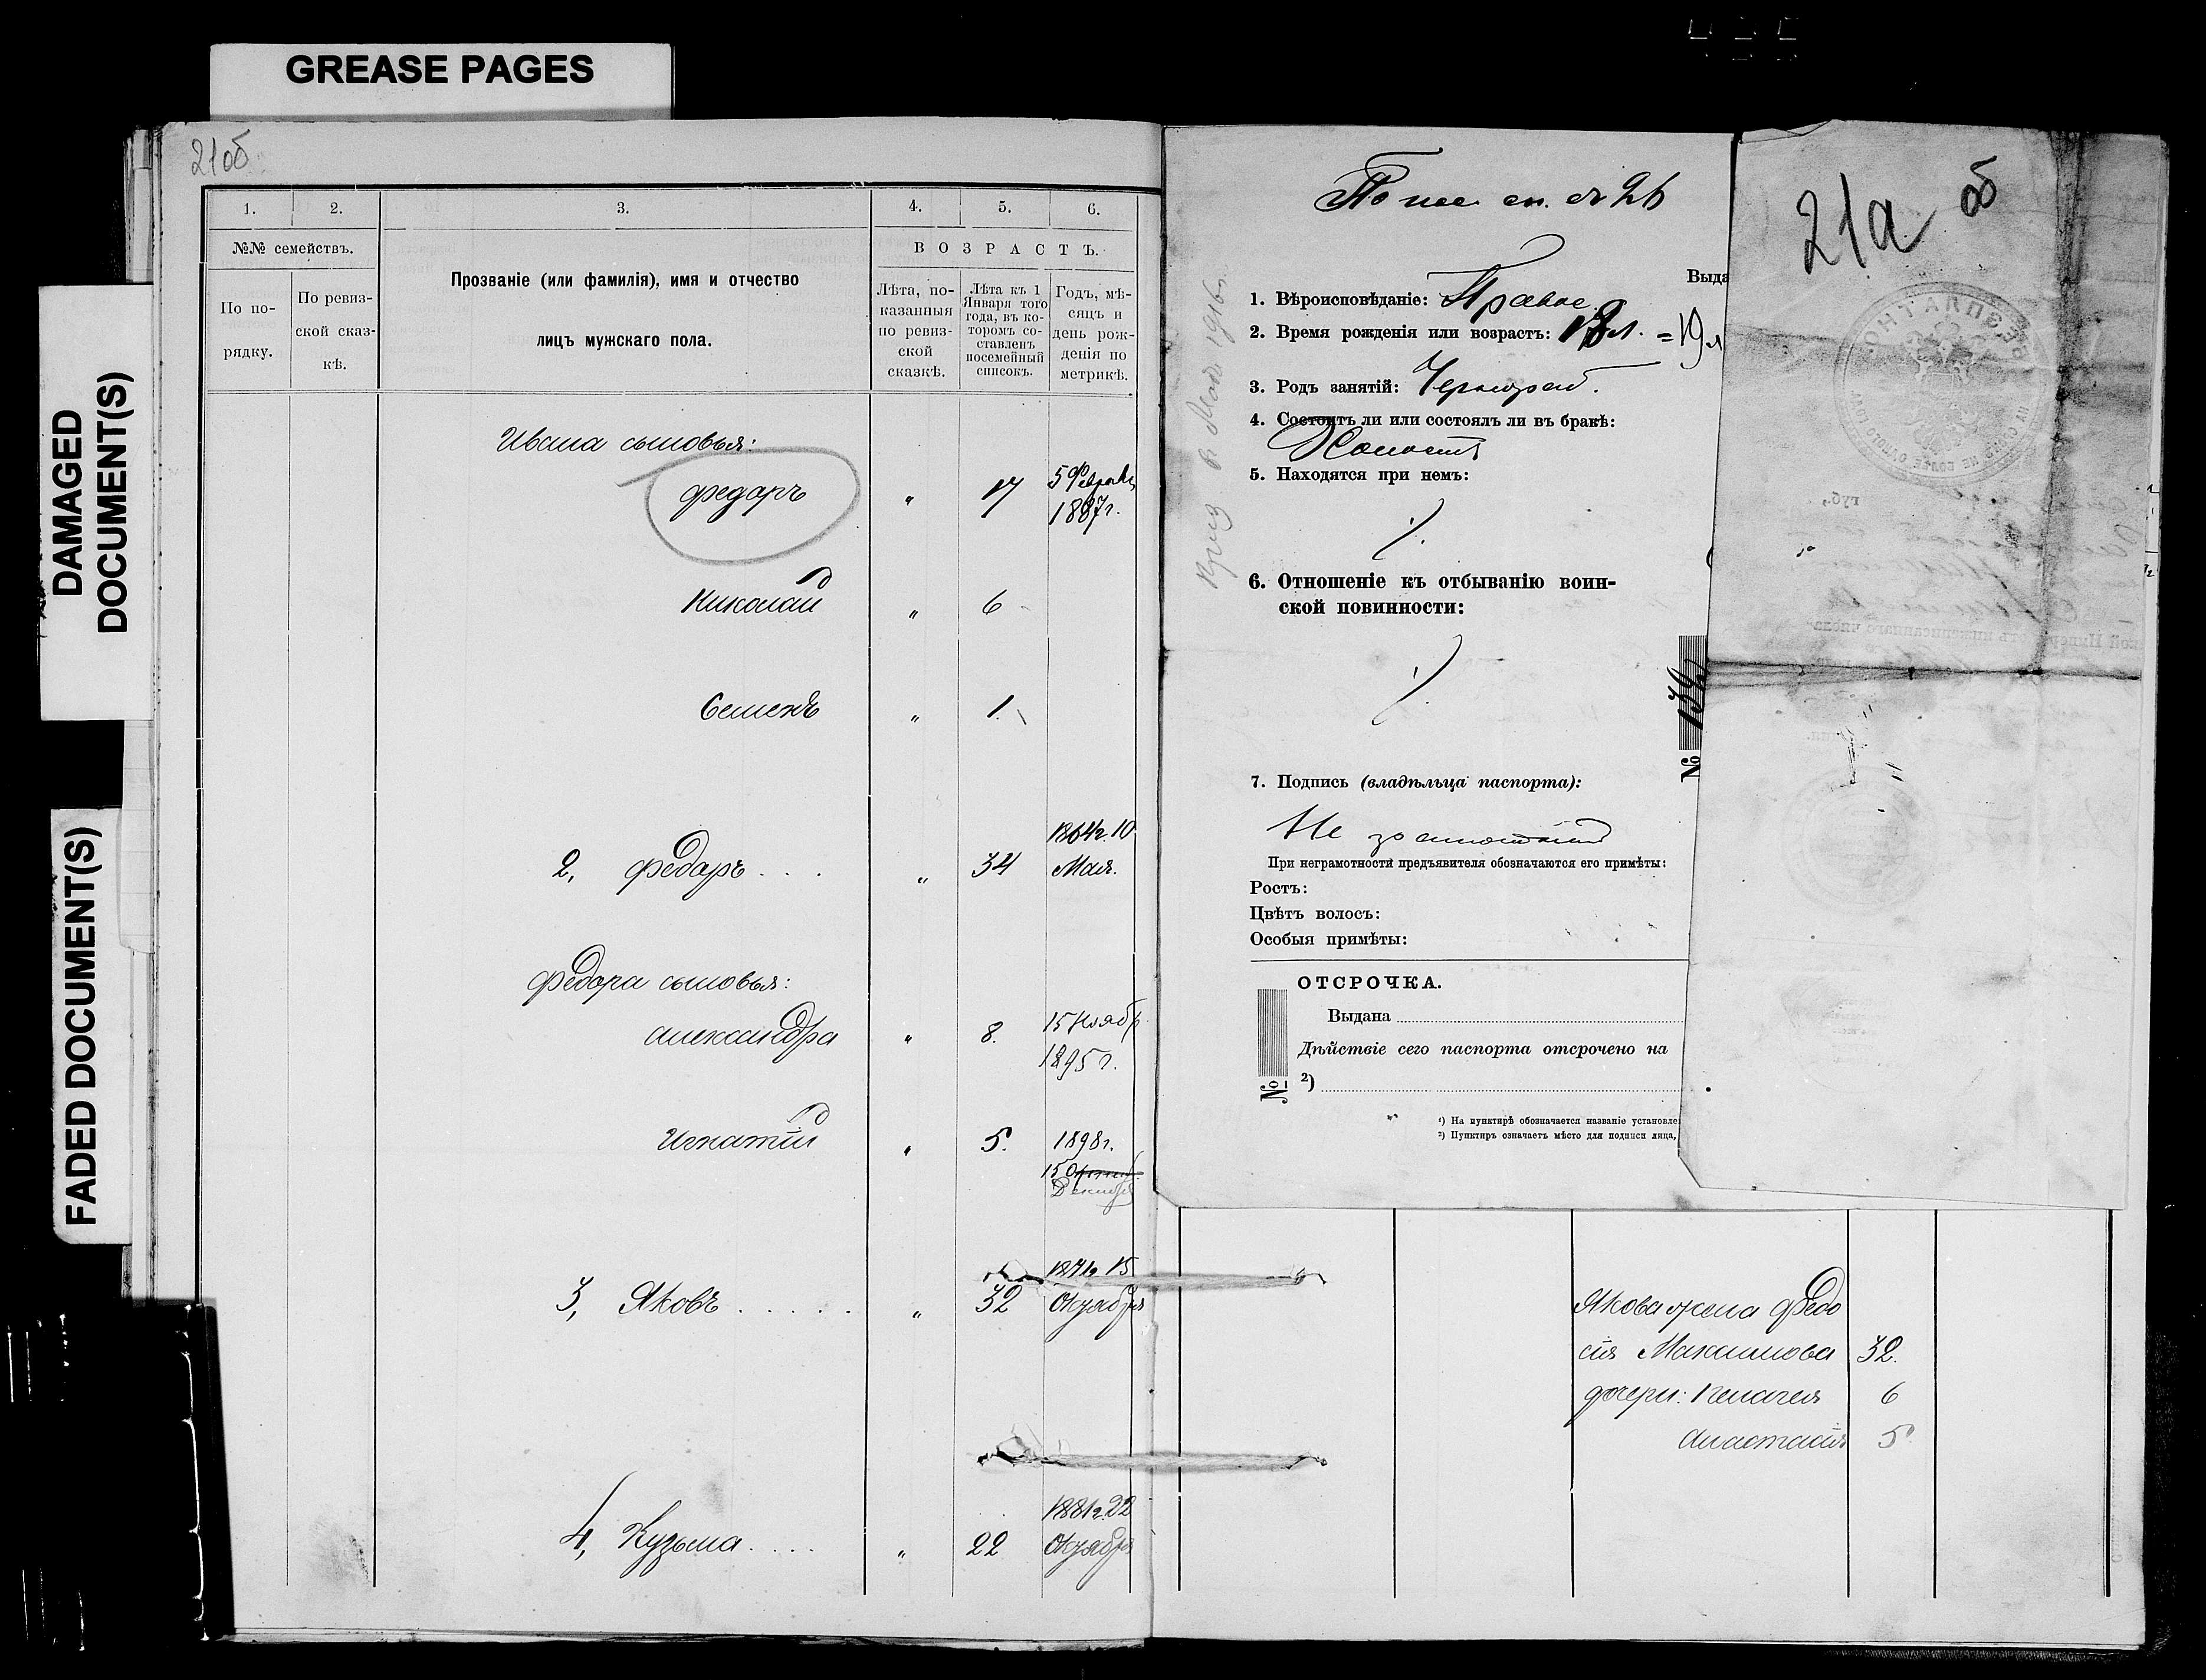 GREASE PAGES
DAMAGED
DOCUMENT(S)
FADED DOCUMENT(S)
21об
1.
2.
3.
4.
5.
6.
№№ семействъ.
По по-
рядку.
По ревиз-
ской сказ-
кѣ.
Прозваніе (или фамилія), имя и отчество
лицъ мужскаго пола.
ВОЗРАСТЪ.
Лѣта, по-
казанныя
по ревиз-
ской
сказкѣ.
Лѣта къ 1
Января того
года, въ ко-
торомъ со-
ставленъ
посемейный
списокъ.
Годъ, мѣ-
сяцъ и
день рож-
денія по
метрикѣ.
Ивана сыновья:
Федоръ " 17 5 Февраля
1887г.
Николай " 6
Семенъ " 1.
1864г. 10
2, Федоръ . . . " 34 Мая.
Федора сыновья:
Александра " 8. 15 Ноябр
1895 г.
Игнатій " 5. 1898г.
15
Декабр
1871г. 15
3, Яковъ . . . . . " 32 Октября
1881г. 22
4, Кузьма . . . . " 22 Октября
По пос. сп. № 26
Выда
1. Вѣроисповѣданіе: Правос.
2. Время рожденія или возрастъ: 18 л. = 19 л
3. Родъ занятій: Чернораб.
4. Состоитъ ли или состоялъ ли въ бракѣ:
Холостъ
5. Находятся при немъ:
6. Отношеніе къ отбыванію воин-
ской повинности:
№ 139
7. Подпись (владѣльца паспорта):
Не
При неграмотности предъявителя обозначаются его примѣты:
Ростъ:
Цвѣтъ волосъ:
Особыя примѣты:
ОТСРОЧКА.
Выдана
Дѣйствіе сего паспорта отсрочено на
№ 2)
1) На пунктирѣ обозначается названіе установле
2) Пунктиръ означаетъ мѣсто для подписи лица,
21а об
Якова жена Федо
сія Максимова 32.
дочери: Пелагея 6
Анастасія 5